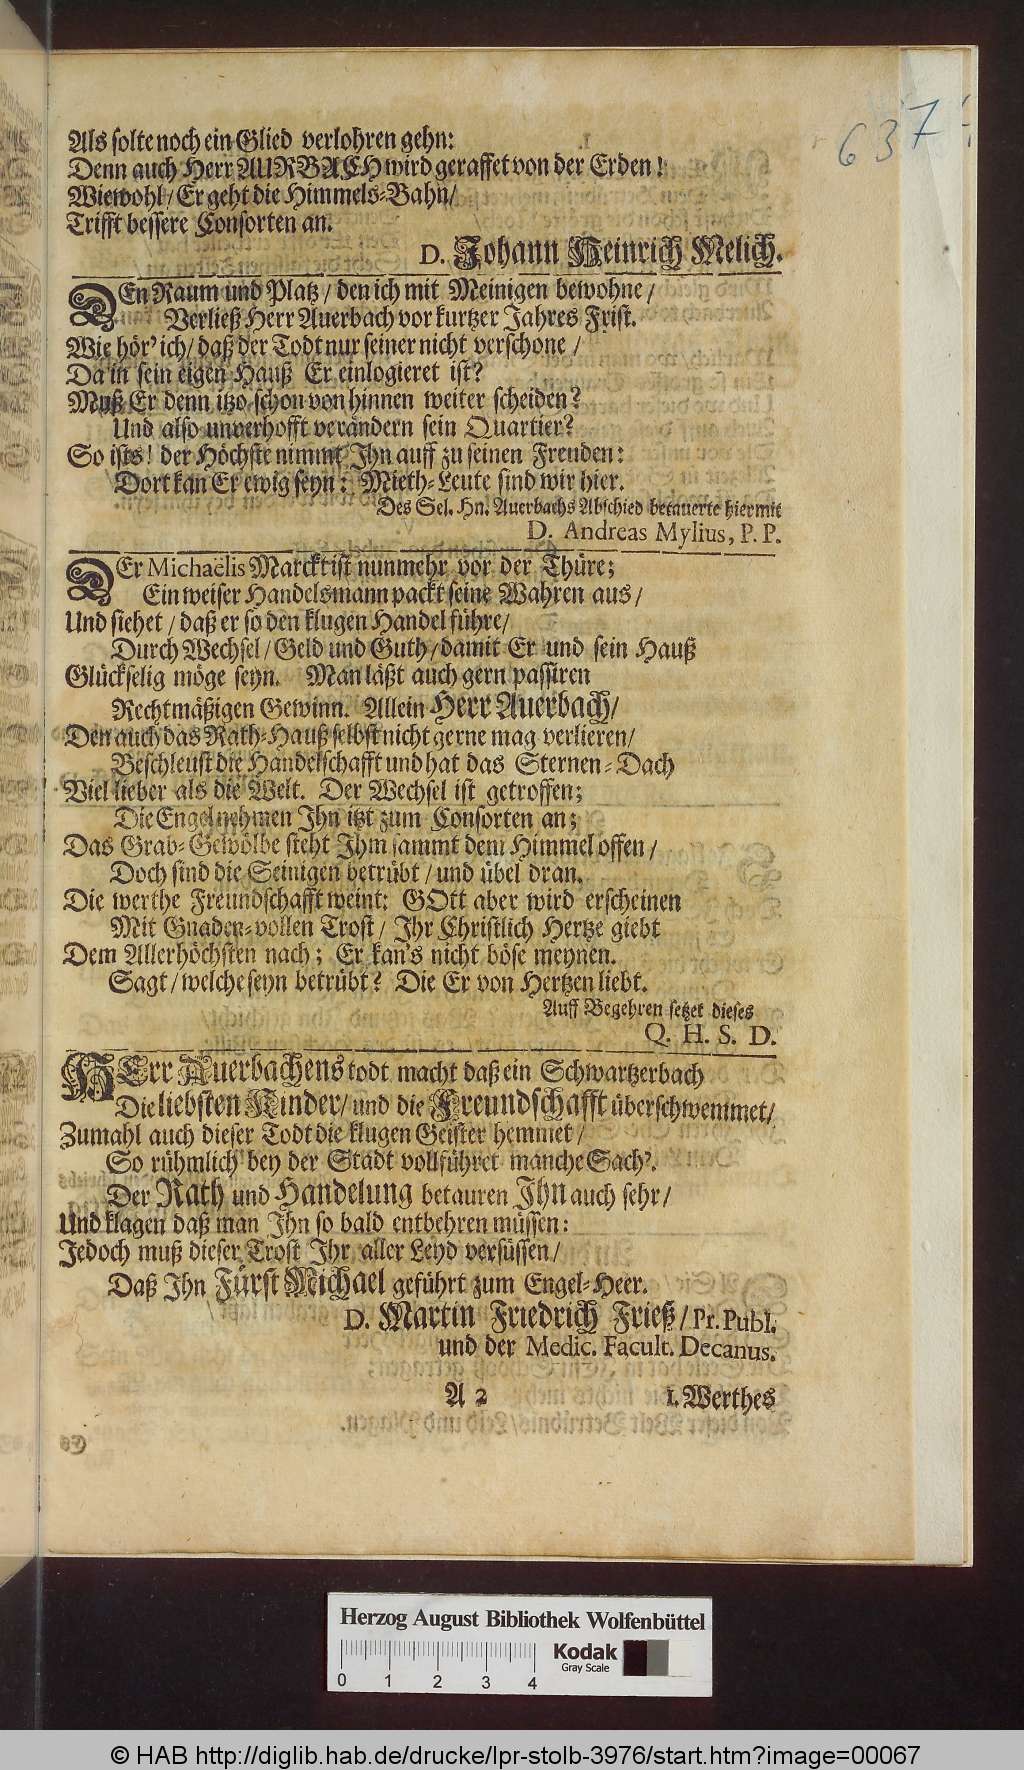 637
Als solte noch ein Glied verlohren gehn:
Denn auch Herr AURBACH wird geraffet von der Erden!
Wiewohl / Er geht die Himmels-Bahn /
Trifft bessere Consorten an.
D. Johann Heinrich Melich.
DEn Raum und Platz / den ich mit Meinigen bewohne /
Verließ Herr Auerbach vor kurtzer Jahres Frist.
Wie hör' ich / daß der Todt nur seiner nicht verschone /
Da in sein eigen Hauß Er einlogieret ist?
Muß Er denn itzo schon von hinnen weiter scheiden?
Und also unverhofft verändern sein Quartier?
So ists! der Höchste nimmt Ihn auff zu seinen Freuden:
Dort kan Er ewig seyn: Mieth-Leute sind wir hier.
Des Sel. Hn. Auerbachs Abschied betauerte hiermit
D. Andreas Mylius, P. P.
DEr Michaëlis Marckt ist nunmehr vor der Thüre;
Ein weiser Handelsmann packt seine Wahren aus /
Und siehet / daß er so den klugen Handel führe /
Durch Wechsel / Geld und Guth / damit Er und sein Hauß
Glückselig möge seyn. Man läßt auch gern passiren
Rechtmäßigen Gewinn. Allein Herr Auerbach /
Den auch das Rath-Hauß selbst nicht gerne mag verlieren /
Beschleust die Handelschafft und hat das Sternen-Dach
Viel lieber als die Welt. Der Wechsel ist getroffen;
Die Engel nehmen Ihn itzt zum Consorten an;
Das Grab-Gewölbe steht Ihm sammt dem Himmel offen /
Doch sind die Seinigen betrübt / und übel dran.
Die werthe Freundschafft weint: GOtt aber wird erscheinen
Mit Gnaden-vollen Trost / Ihr Christlich Hertze giebt
Dem Allerhöchsten nach; Er kan's nicht böse meynen.
Sagt / welche seyn betrübt? Die Er von Hertzen liebt.
Auff Begehren setzet dieses
Q. H. S. D.
HErr Auerbachens todt macht daß ein Schwartzerbach
Die liebsten Kinder / und die Freundschafft überschwemmet /
Zumahl auch dieser Todt die klugen Geister hemmet /
So rühmlich bey der Stadt vollführet manche Sach'.
Der Rath und Handelung betauren Ihn auch sehr /
Und klagen daß man Ihn so bald entbehren müssen:
Jedoch muß dieser Trost Ihr aller Leyd versüssen /
Daß Ihn Fürst Michael geführt zum Engel-Heer.
D. Martin Friedrich Frieß / Pr. Publ.
und der Medic. Facult. Decanus.
A 2 1. Werthes
Herzog August Bibliothek Wolfenbüttel
0 1 2 3 4
Kodak
Gray Scale
© HAB http://diglib.hab.de/drucke/lpr-stolb-3976/start.htm?image=00067